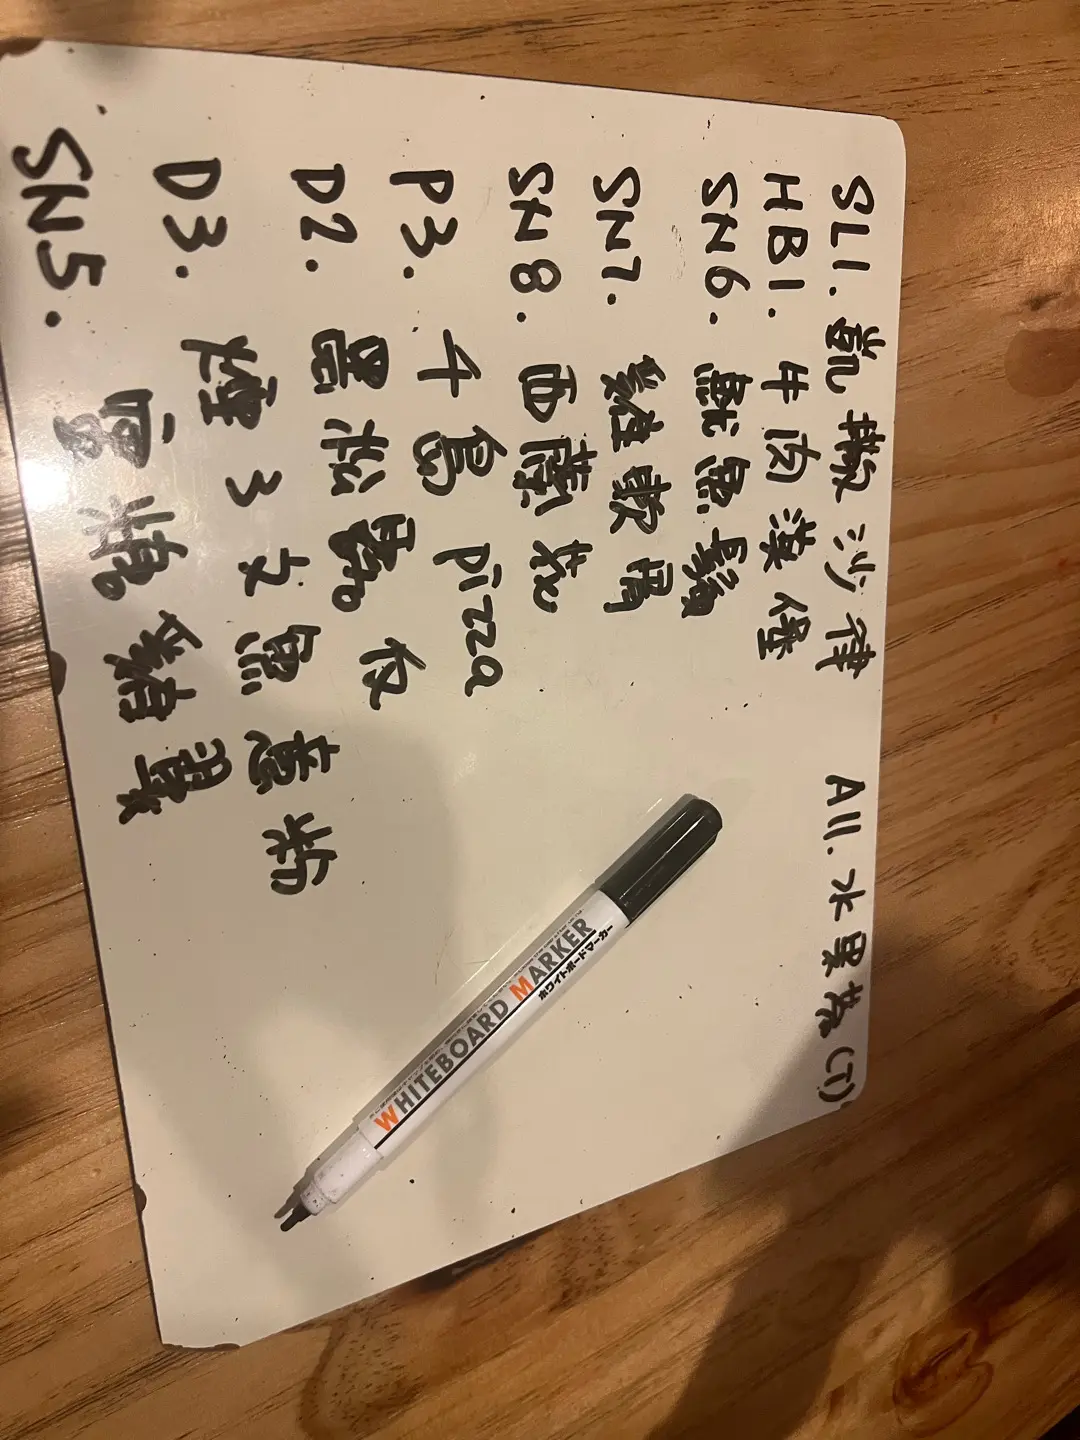 SL1. 凱撒沙律 A11. 水果茶(T)
HB1. 牛肉漢堡
SN6. 魷魚鬚
SN7. 雞軟骨
SN8. 西蘭花
P3. 千島 pizza
D2. 黑松露
D3. 煙3文魚意粉
SN5. 蜜糖雞翼
WHITEBOARD MARKER
ホワイトボードマーカー